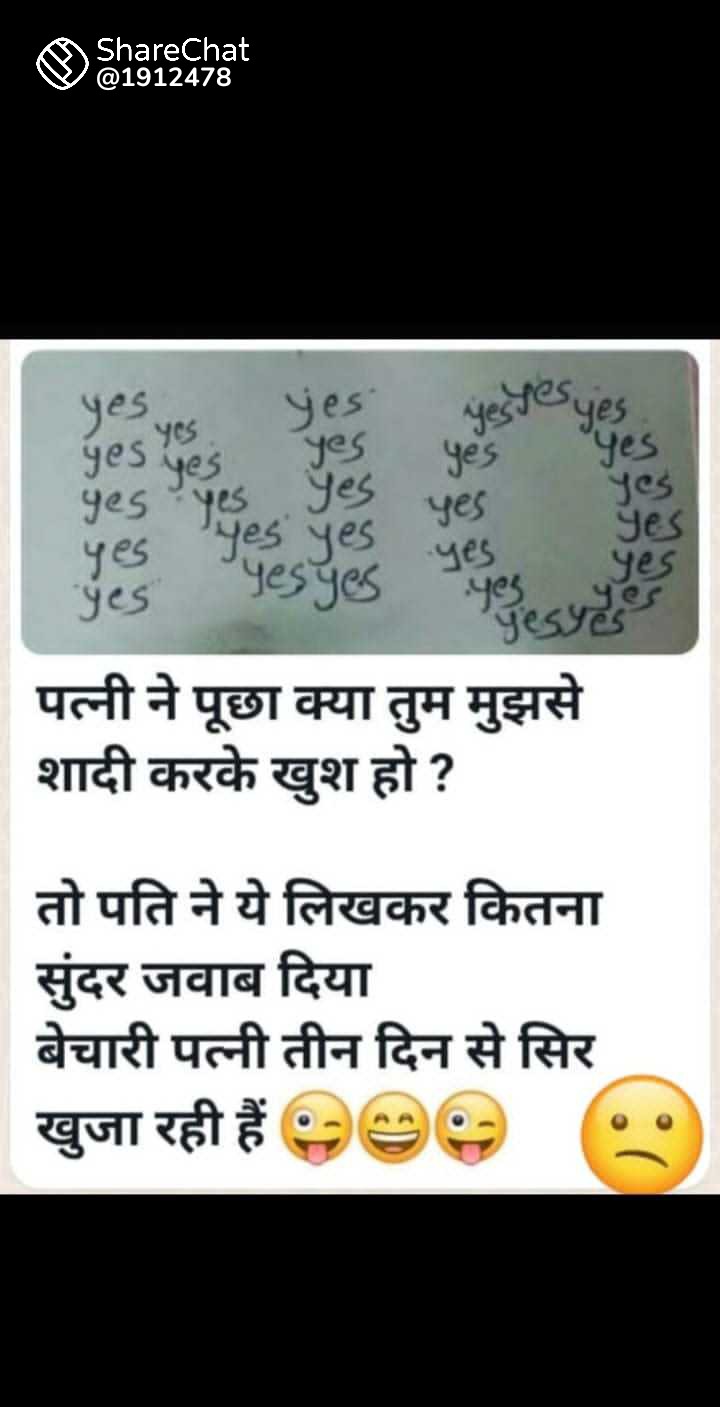 ShareChat
@1912478
yes yes yes yes yes
yes yes yes yes
yes yes yes yes yes
yes yes yes yes yes
yes yes yes yes yes
yes yes yes yes yes
yes yes
yes yes
पत्नी ने पूछा क्या तुम मुझसे
शादी करके खुश हो ?
तो पति ने ये लिखकर कितना
सुंदर जवाब दिया
बेचारी पत्नी तीन दिन से सिर
खुजा रही हैं